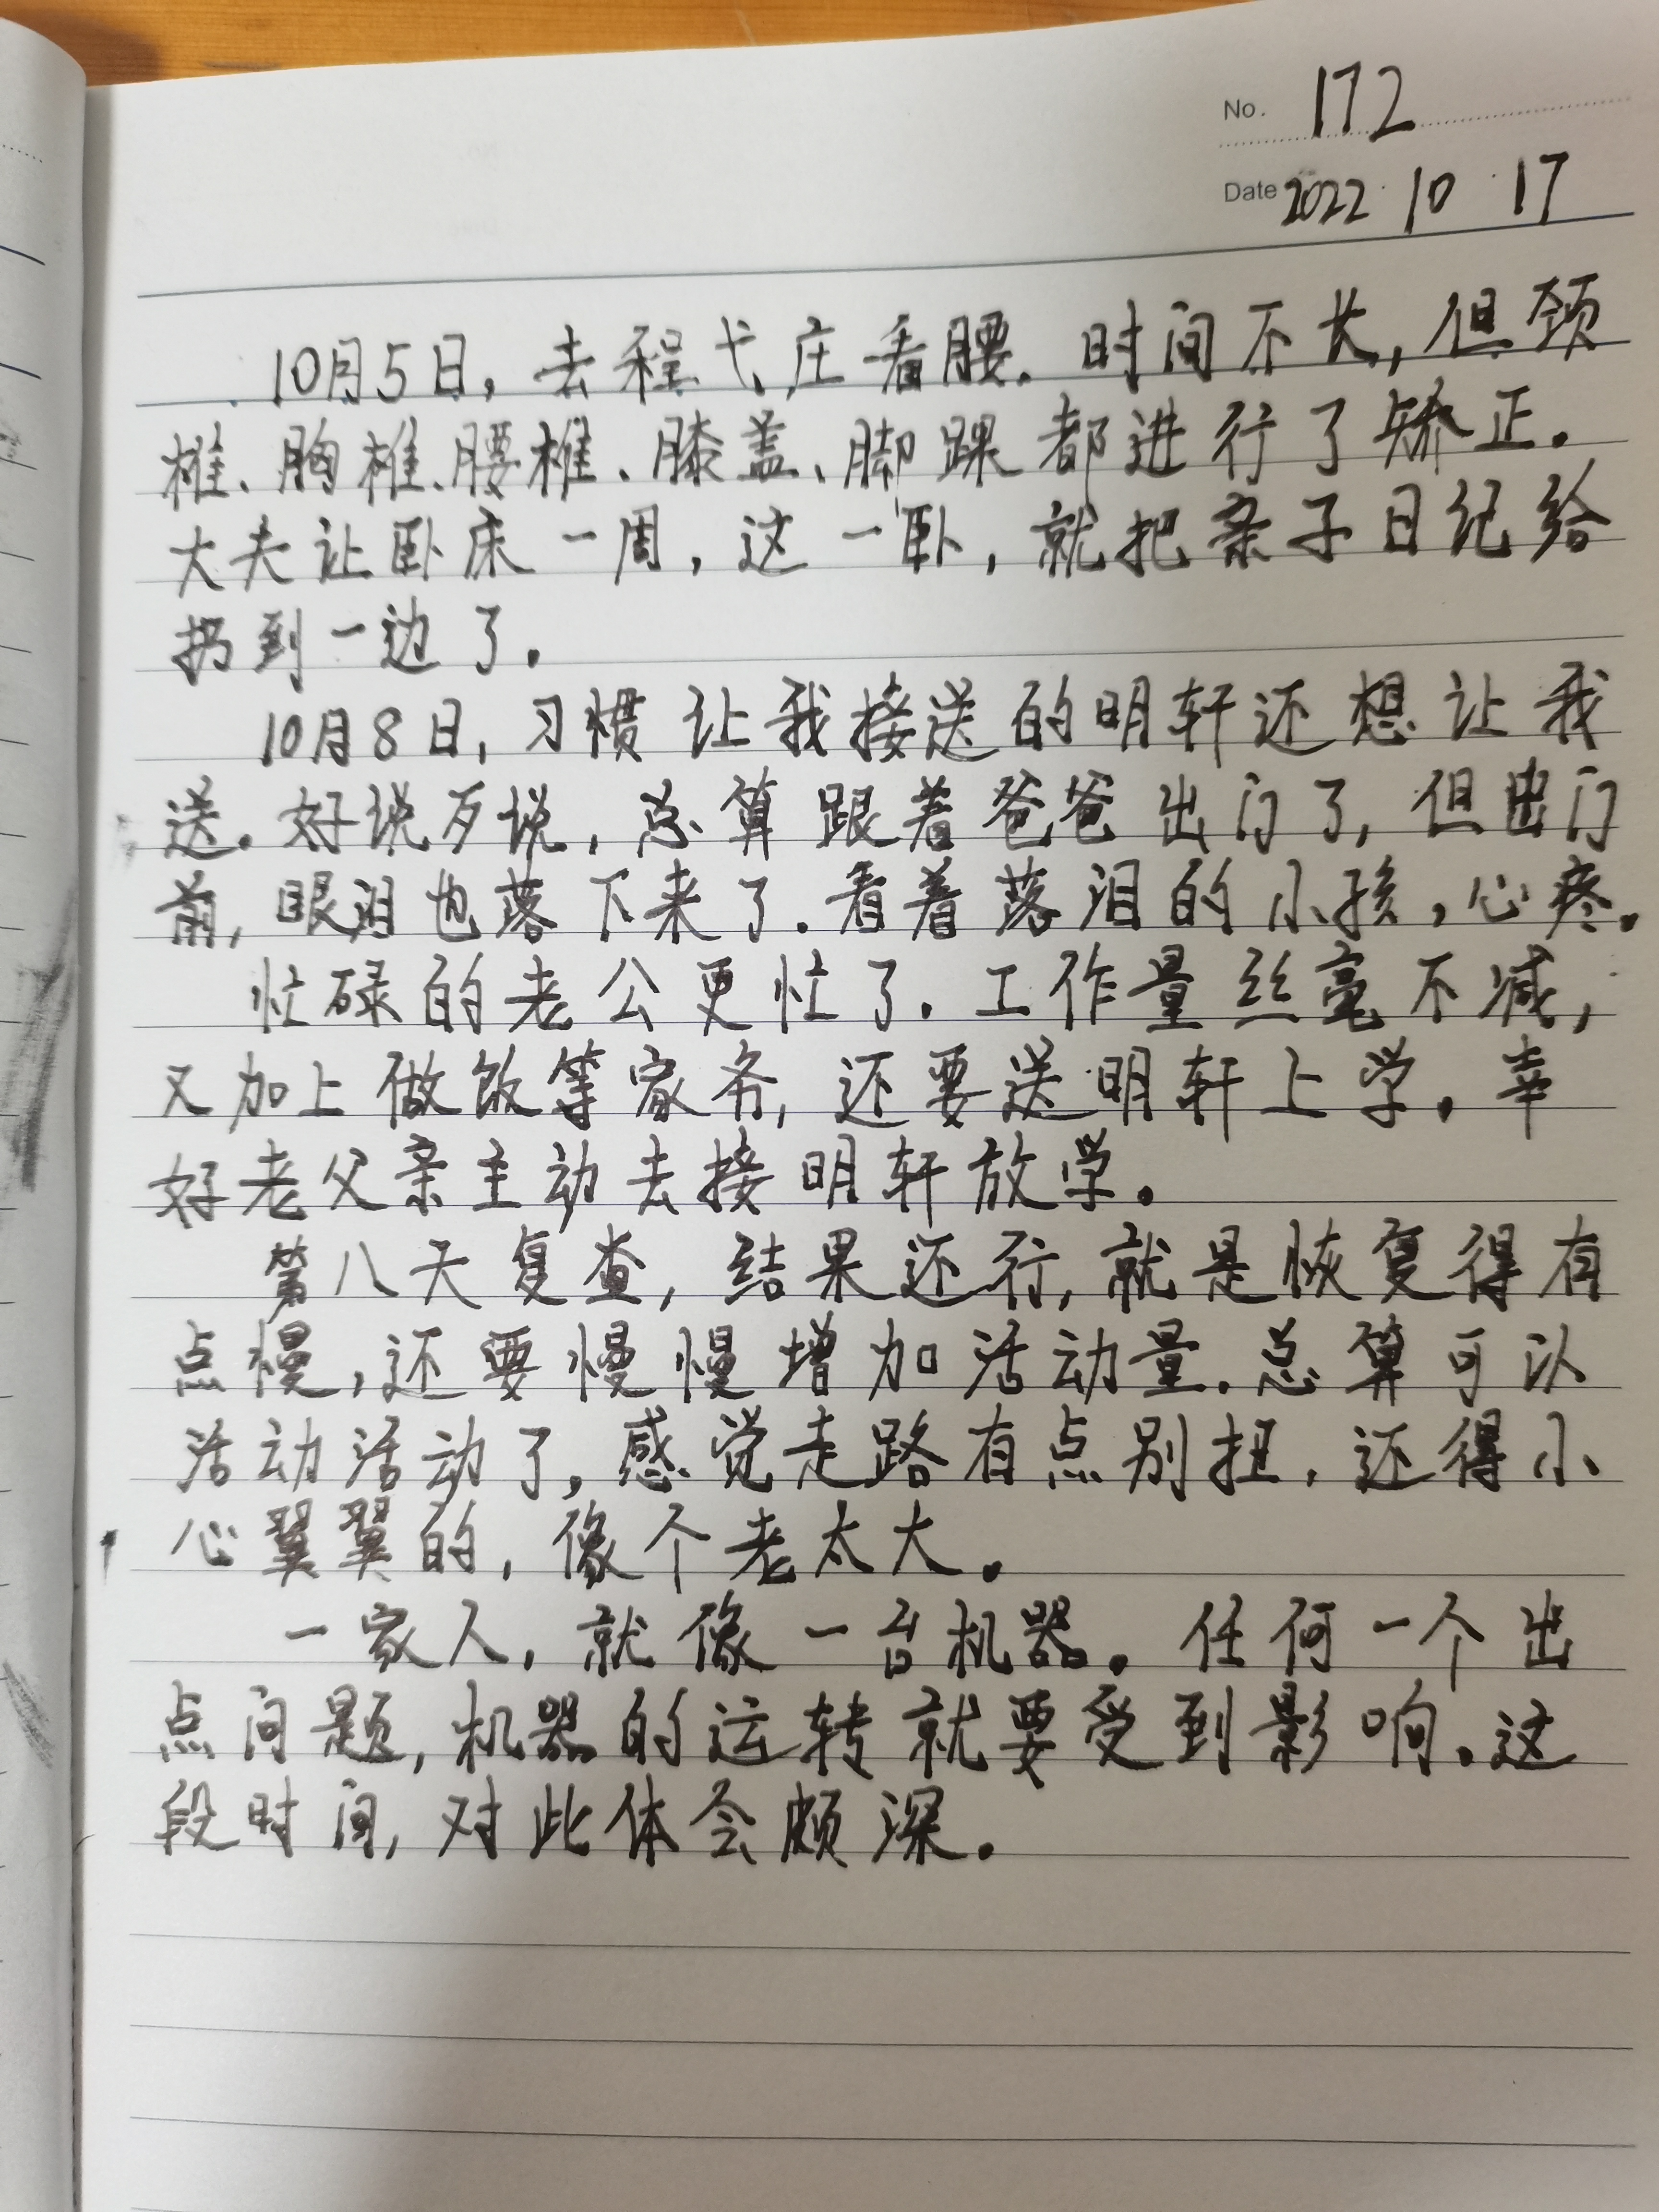 No. 172
Date 2022 10 17
10月5日，去程弋庄看腰。时间不长，但颈
椎、胸椎、腰椎、膝盖、脚踝都进行了矫正。
大夫让卧床一周，这一卧，就把亲子日纪给
扔到一边了。
10月8日，习惯让我接送的明轩还想让我
送。好说歹说，总算跟着爸爸出门了，但出门
前，眼泪也落下来了。看着落泪的小孩，心疼。
忙碌的老公更忙了。工作量丝毫不减，
又加上做饭等家务，还要送明轩上学。幸
好老父亲主动去接明轩放学。
第八天复查，结果还行，就是恢复得有
点慢，还要慢慢增加活动量。总算可以
活动活动了，感觉走路有点别扭，还得小
心翼翼的，像个老太大。
一家人，就像一台机器。任何一个出
点问题，机器的运转就要受到影响。这
段时间，对此体会颇深。